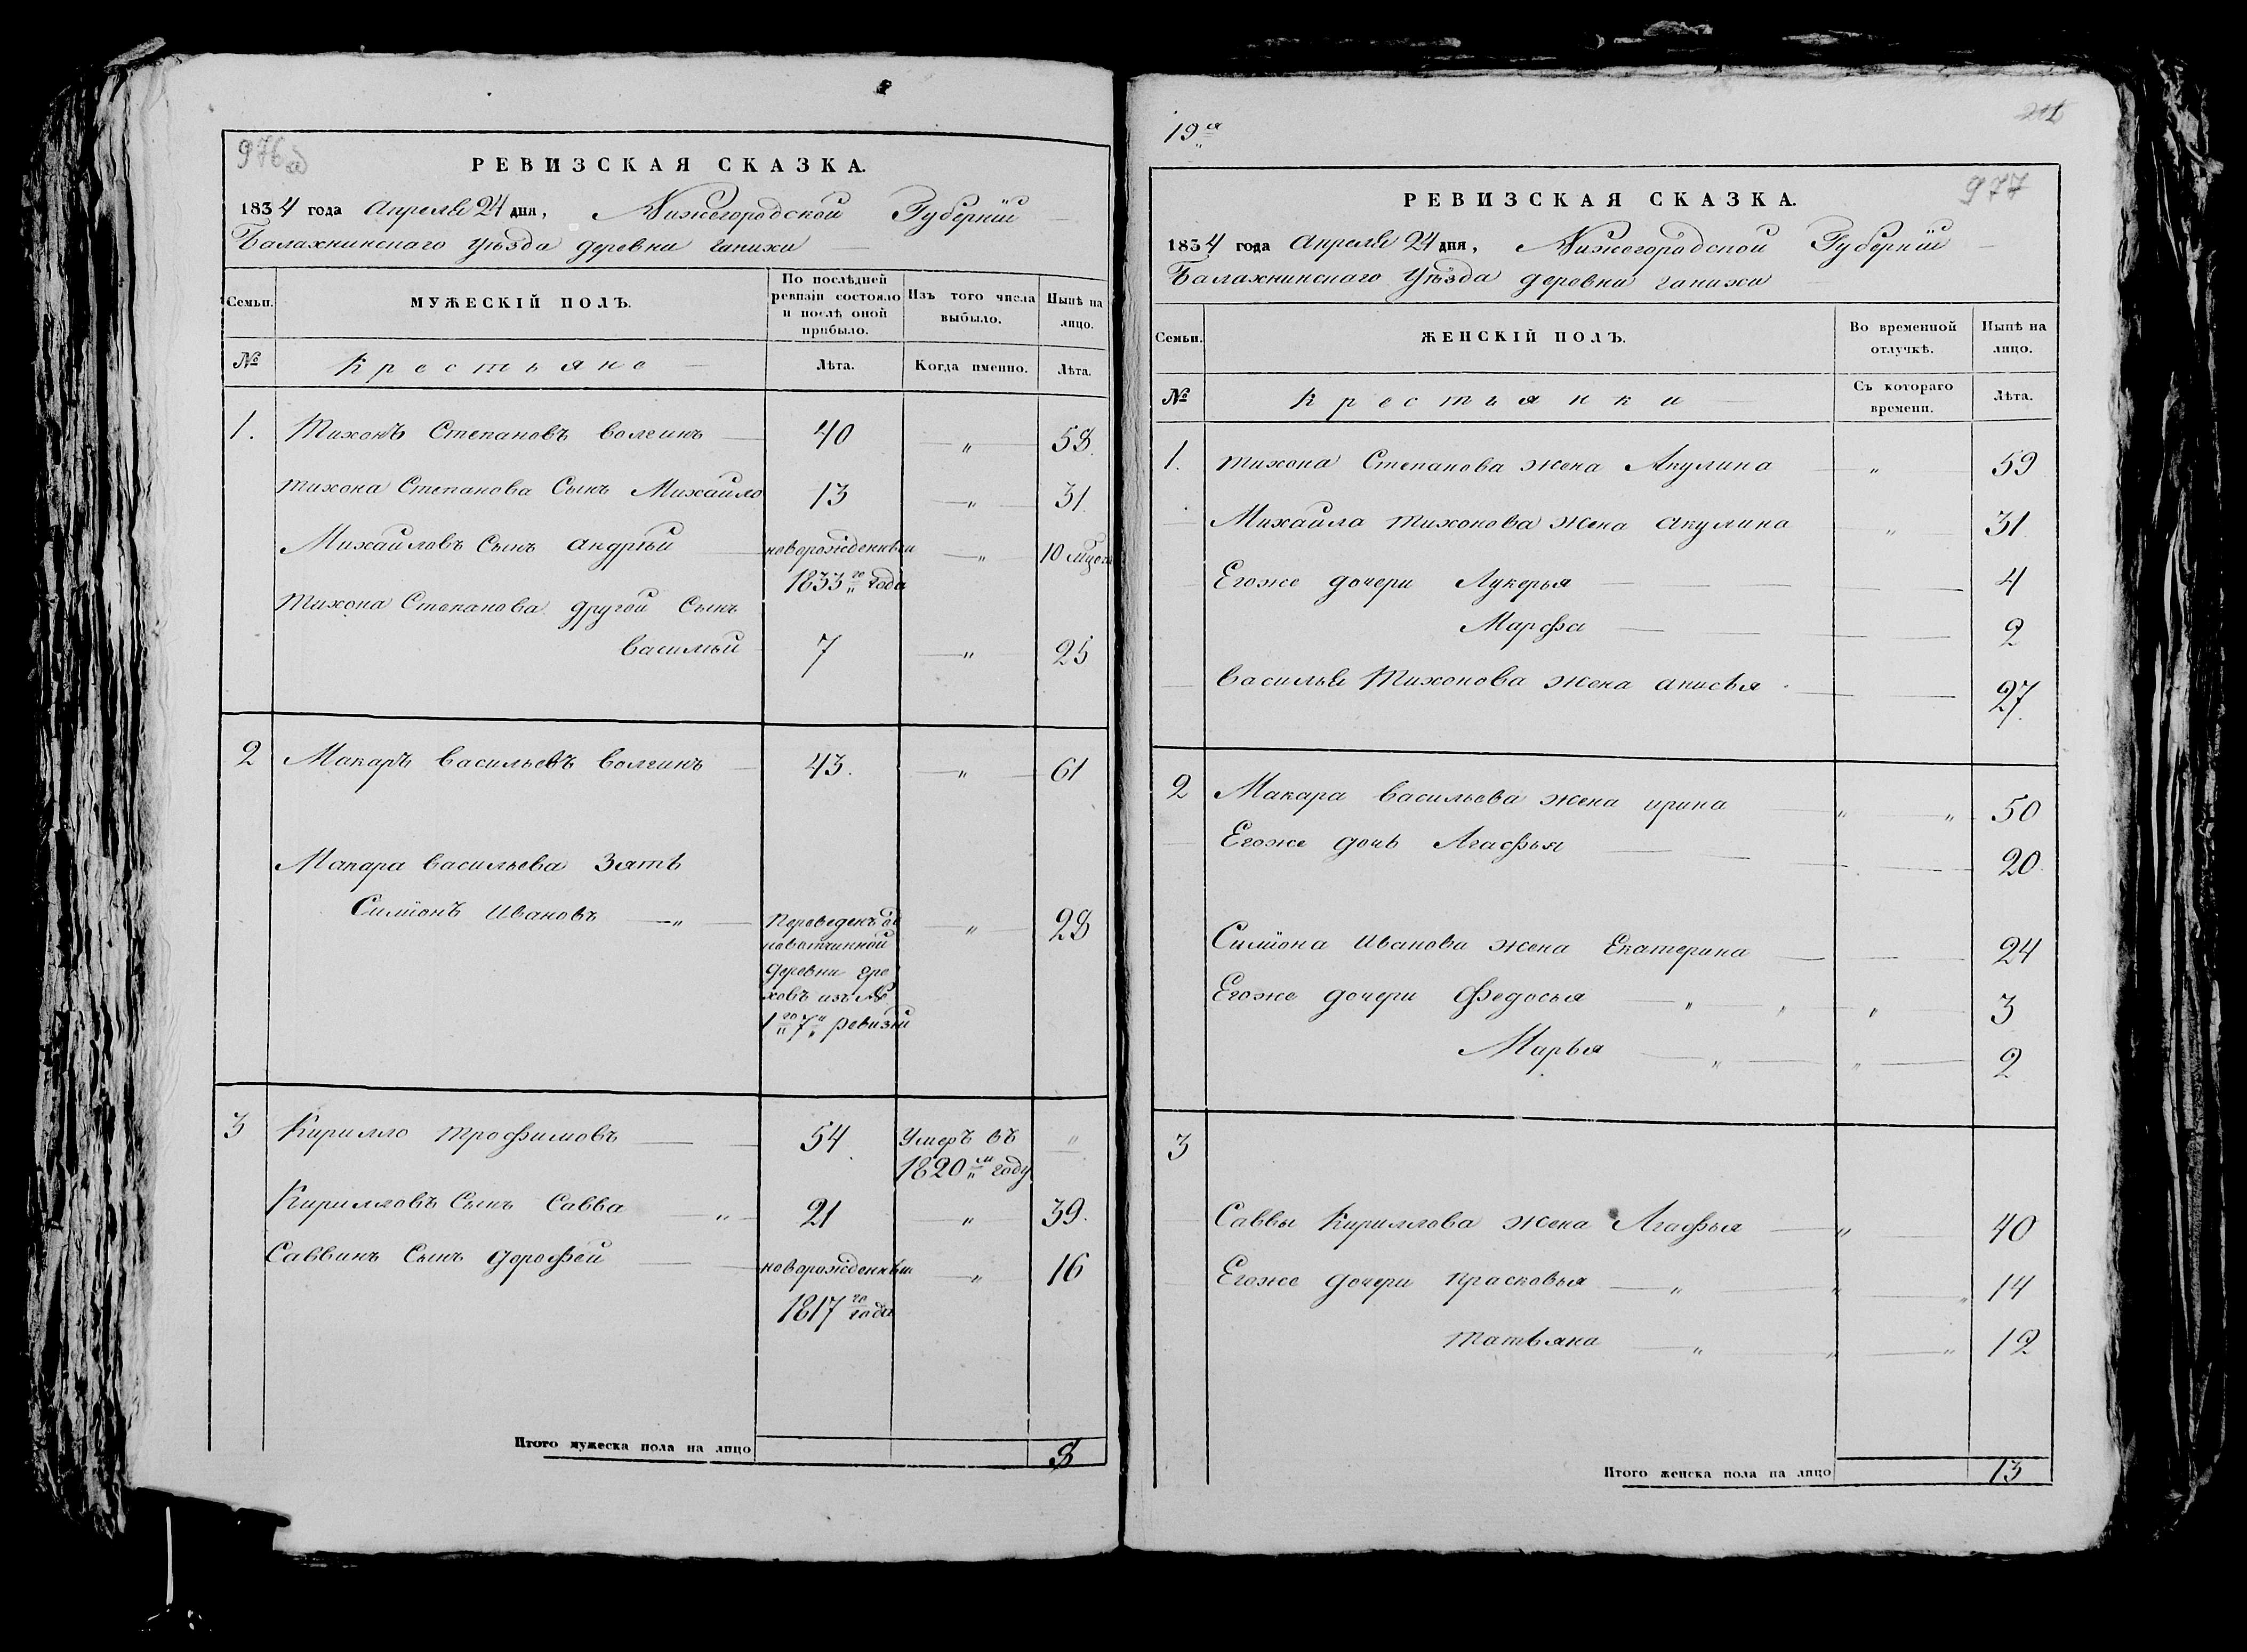 976 об
РЕВИЗСКАЯ СКАЗКА.
1834 года Апреля 24 дня, Нижегородской Губернiи
Балахнинскаго Уѣзда деревни ганихи
Семьи.
МУЖЕСКIЙ ПОЛЪ.
По послѣдней ревизiи состояло и послѣ оной прибыло.
Изъ того числа выбыло.
Нынѣ на лицо.
№
Крестьяне
Лѣта.
Когда именно.
Лѣта.
1. Тихонъ Степановъ волгинъ 40 „ 58.
тихона Степанова Сынъ Михаило 13 „ 31
Михаиловъ Сынъ андрѣй новорожденный „ 10 мцовъ
1833го года
тихона Степанова другой Сынъ
василѣй 7 „ 25
2 Макаръ васильевъ волгинъ 43. „ 61
Макара васильева Зять
Симiонъ ивановъ „ Переведенъ об „ 28
новотчинной
деревни ере
ховъ изъ №
1го 7й ревизiи
3 Кирилло трофимовъ 54 Умеръ въ „
1820м году
Кирилловъ Сынъ Савва „ 21 „ 39.
Саввинъ Сынъ дорофей новорожденный „ 16
1817го года
Итого мужеска пола на лицо 8
19я
977
РЕВИЗСКАЯ СКАЗКА.
1834 года Апреля 24 дня, Нижегородской Губернiи
Балахнинскаго Уѣзда деревни ганихи
Семьи.
ЖЕНСКIЙ ПОЛЪ.
Во временной отлучкѣ.
Нынѣ на лицо.
№
Крестьянки
Съ котораго времени.
Лѣта.
1. тихона Степанова жена Акулина „ 59
Михаила тихонова жена акулина „ 31
Егоже дочери Лукерья 4
Марфа 2
василья Тихонова жена анисья 27.
2 Макара васильева жена ирина „ „ 50
Егоже дочь Агафья 20
Симiона иванова жена Екатерина 24
Егоже дочери Федосья „ „ „ 3
Марья „ „ 2
3
Саввы Кириллова жена Агафья „ 40
Егоже дочери прасковья „ „ „ 14
татьяна „ „ „ 12
Итого женска пола на лицо 13